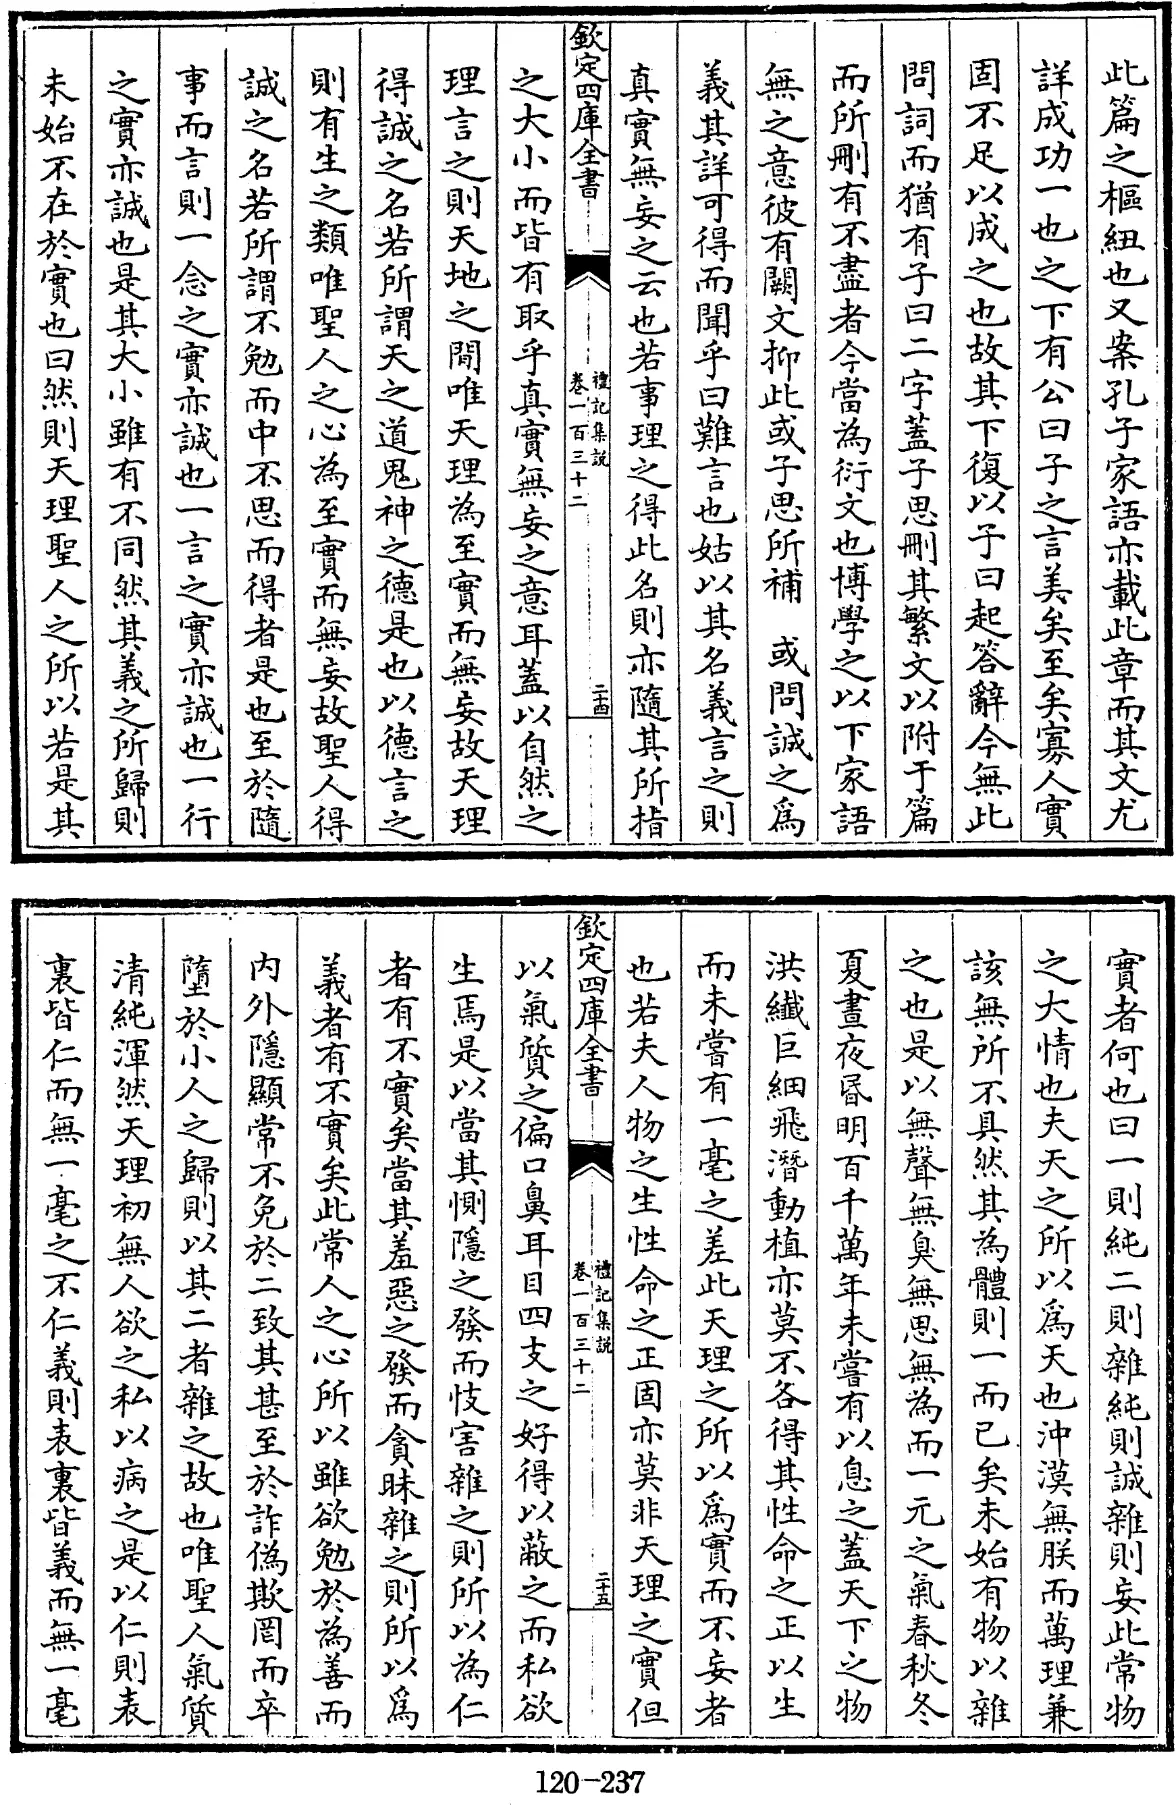 此篇之樞紐也又案孔子家語亦載此章而其文尤
詳成功一也之下有公曰子之言美矣至矣寡人實
固不足以成之也故其下復以子曰起答辭今無此
問詞而猶有子曰二字蓋子思刪其繁文以附于篇
而所刪有不盡者今當為衍文也博學之以下家語
無之意彼有闕文抑此或子思所補　或問誠之爲
義其詳可得而聞乎曰難言也姑以其名義言之則
真實無妄之云也若事理之得此名則亦隨其所指
欽定四庫全書
禮記集說
卷一百三十二
二十四
之大小而皆有取乎真實無妄之意耳蓋以自然之
理言之則天地之間唯天理為至實而無妄故天理
得誠之名若所謂天之道鬼神之德是也以德言之
則有生之類唯聖人之心為至實而無妄故聖人得
誠之名若所謂不勉而中不思而得者是也至於隨
事而言則一念之實亦誠也一言之實亦誠也一行
之實亦誠也是其大小雖有不同然其義之所歸則
未始不在於實也曰然則天理聖人之所以若是其
實者何也曰一則純二則雜純則誠雜則妄此常物
之大情也夫天之所以爲天也沖漠無朕而萬理兼
該無所不具然其為體則一而已矣未始有物以雜
之也是以無聲無臭無思無為而一元之氣春秋冬
夏晝夜昬明百千萬年未嘗有以息之蓋天下之物
洪纖巨細飛潛動植亦莫不各得其性命之正以生
而未嘗有一毫之差此天理之所以爲實而不妄者
也若夫人物之生性命之正固亦莫非天理之實但
欽定四庫全書
禮記集說
卷一百三十二
二十五
以氣質之偏口鼻耳目四支之好得以蔽之而私欲
生焉是以當其惻隱之發而忮害雜之則所以為仁
者有不實矣當其羞惡之發而貪昧雜之則所以爲
義者有不實矣此常人之心所以雖欲勉於為善而
内外隱顯常不免於二致其甚至於詐偽欺罔而卒
墮於小人之歸則以其二者雜之故也唯聖人氣質
清純渾然天理初無人欲之私以病之是以仁則表
裏皆仁而無一毫之不仁義則表裏皆義而無一毫
120-237